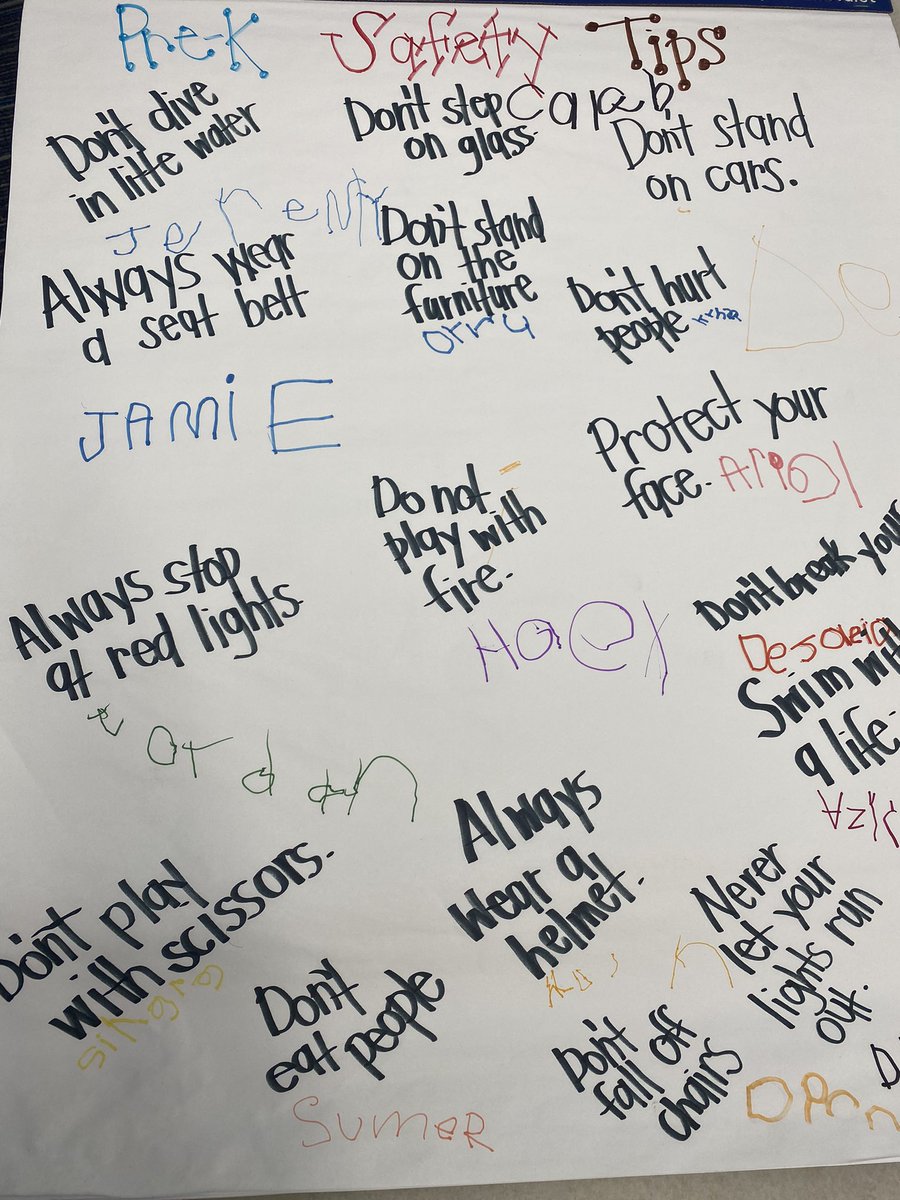 Pre-K Safety Tips
Don't dive
in litte water
Don't step
on glass.
Caleb
Don't stand
on cars.
Jeremy
Always wear
a seat belt
Don't stand
on the
furniture
orru
Don't hurt
people
De
JAMiE
Protect your
face.
Ariel
Do not
play with
fire.
Always stop
at red lights.
Don't break your
Swim with
a life.
Always
Wear a
helmet.
Never
let your
lights run
out.
Don't play
with scissors.
Don't
eat people
SumeR
Don't
fall off
chairs